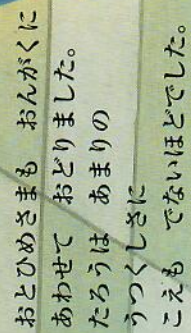 おとひめさまも おんがくに
あわせて おどりました。
たろうは あまりの
うつくしさに
こえも でないほどでした。